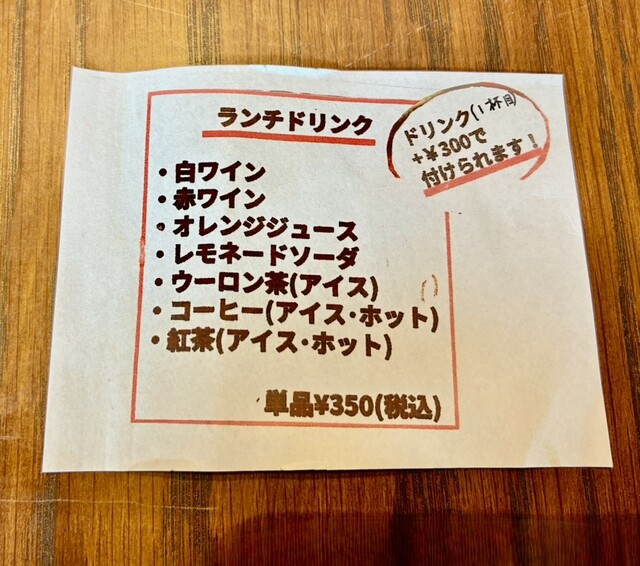 ランチドリンク
ドリンク(1杯目)
+¥300で
付けられます！
・白ワイン
・赤ワイン
・オレンジジュース
・レモネードソーダ
・ウーロン茶(アイス)
・コーヒー(アイス・ホット)
・紅茶(アイス・ホット)
単品¥350(税込)